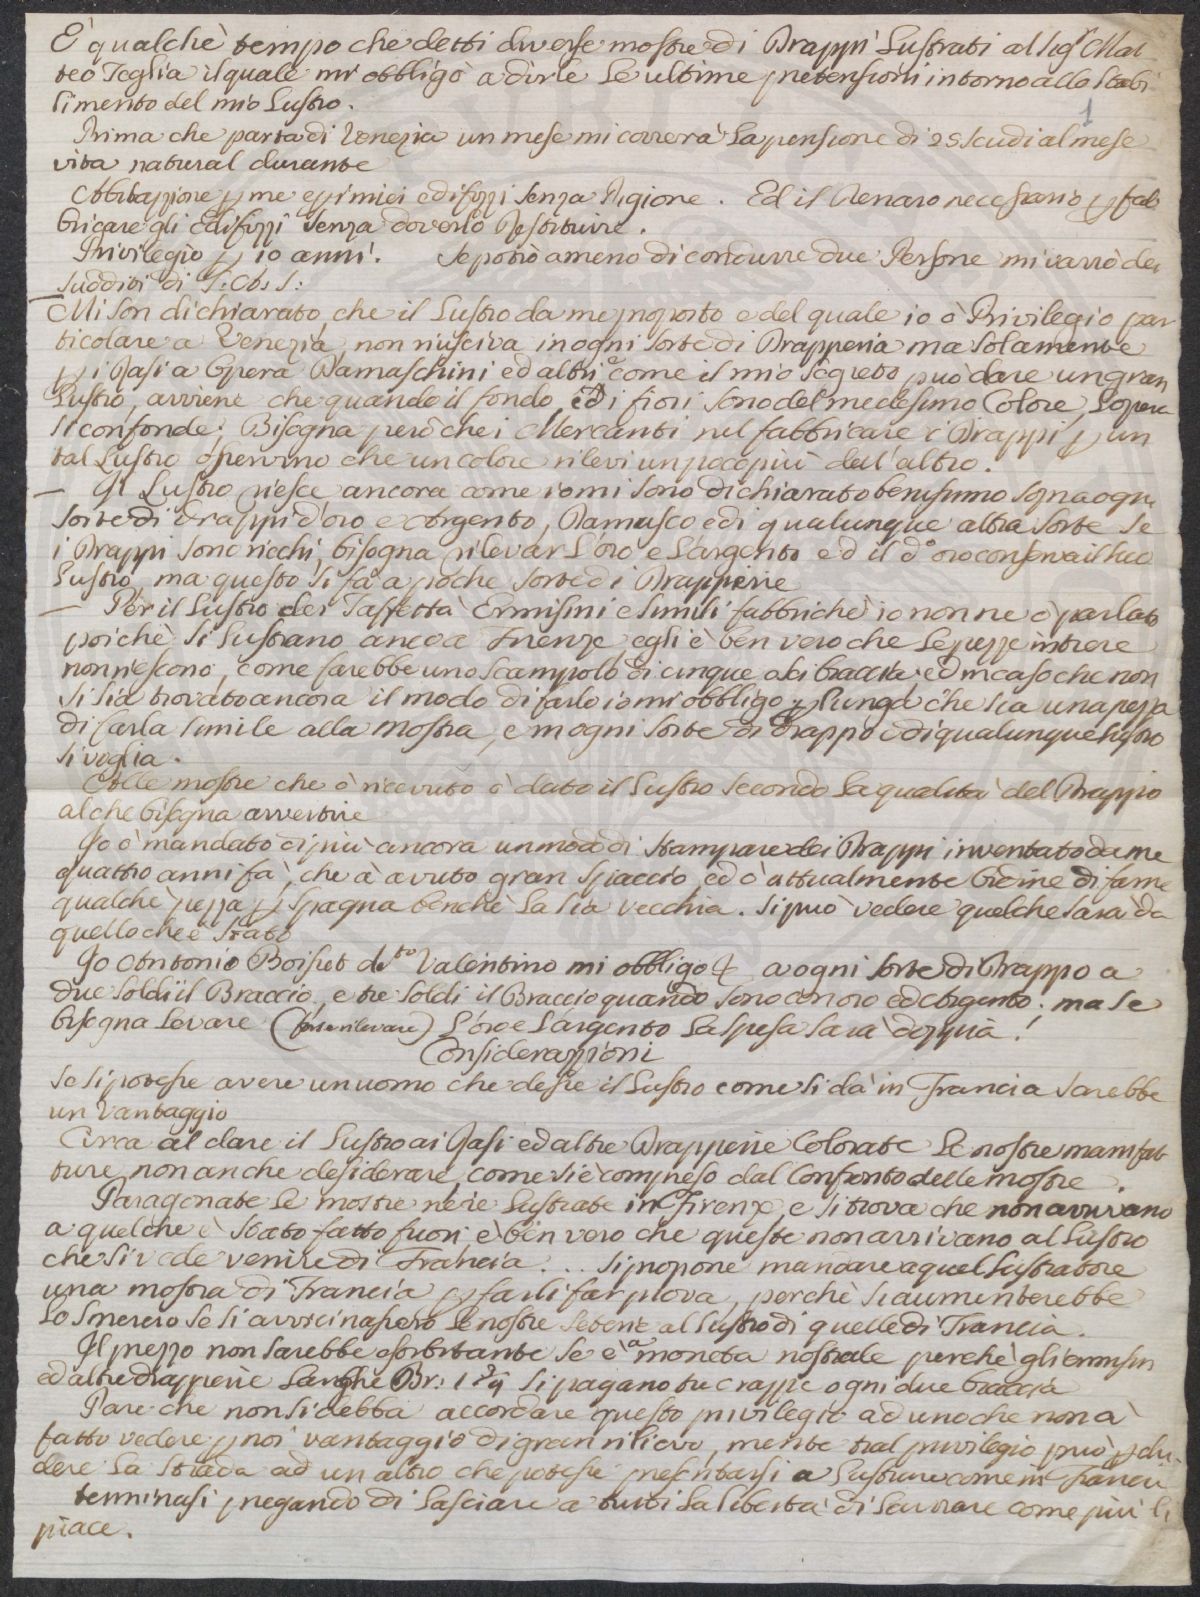 È qualchè tempo che detti diverse mostre di Drappi Lustrati al Sigr Mat
teo Teglia il quale mi obbligò a dirle le ultime pretensioni intorno allo Stabi
limento del mio Lustro.
1
Prima che parta di Venezia un mese mi correrà la pensione di 25 scudi al mese
vita natural durante
Abitazzione p me e p i miei edifizzi senza Pigione. Ed il Denaro necessario p fab
bricare gli edifizzi senza doverlo Restituire.
Privilegio p 10 anni. Se potrò a meno di condurre due Persone mi varrò dei
sudditi di
Mi son dichiarato, che il Lustro da me proposto e del quale io ò Privilegio par
ticolare a Venezia, non riusciva in ogni sorte di Drapperia ma solamente
p i Rasi a Opera Damaschini ed altri come il mio segreto può dare un gran
Lustro, avviene che quando il fondo, ed i fiori sono del medesimo Colore, l'opera
si confonde; Bisogna però che i Mercanti nel fabbricare i Drappi p un
tal Lustro osservino che un colore rilevi un poco più dell'altro.
— Il Lustro riesce ancora come io mi sono dichiarato benissimo sopra ogni
sorte di drappi d'oro e Argento, Damasco e di qualunque altra sorte se
i Drappi sono ricchi, bisogna rilevar l'oro e l'argento ed il do oro conserva il suo
Lustro, ma questo si fà a poche sorte di Drapperie
— Per il Lustro dei Taffettà Ermisini e simili fabbriche io non ne ò parlato
poichè si Lustrano ancora a Firenze, egli è ben vero che le pezze intere
non riescono, come sarebbe uno scampolo di cinque o sei braccia; ed in caso che non
si sia trovato ancora il modo di farlo io mi obbligo p lunga che sia una pezza
di farla simile alla mostra, e in ogni sorte di drappo e di qualunque lustro
si voglia.
Alle mostre che ò ricevuto ò dato il Lustro secondo la qualità del Drappo
al che bisogna avvertire
Io ò mandato di più ancora un modo di stampare dei Drappi inventato da me
quattro anni fà, che à avuto gran spaccio, ed ò attualmente ordine di farne
qualchè pezza p Spagna benchè la sia vecchia. Si può vedere quelche sarà da
quello che è stato
Io Antonio Boisset dto Valentino mi obbligo & a ogni sorte di Drappo a
due soldi il Braccio, e tre soldi il Braccio quando sono con oro ed Argento; ma se
bisogna levare (forse rilevare) l'oro e l'argento la spesa sarà doppia!
Considerazzioni
Se si potesse avere un uomo che desse il Lustro come si dà in Francia sarebbe
un vantaggio
Circa al dare il Lustro ai Rasi ed altre Drapperie Colorate le nostre manifat
ture, non anche desiderare, come si è compreso dal Confronto delle mostre.
Paragonate le mostre nere Lustrate in Firenze, e si trova che non arrivano
a quelchè è stato fatto fuori è ben vero che queste non arrivano al Lustro
che si vede venire di Francia... si propone mandare a quel Lustratore
una mostra di Francia p farli far prova, perchè si aumenterebbe
lo smercio se si avvicinassero le nostre seterie al Lustro di quelle di Francia.
Il prezzo non sarebbe esorbitante se è a moneta nostrale perchè gli ermisin
ed altre drapperie larghe Br: 1 si pagano tre crazzie ogni due braccia
Pare che non si debba accordare questo privilegio ad uno che non à
fatto vedere p noi vantaggio di gran rilievo, mentre tal privilegio può p chiu
dere la strada ad un altro che potesse presentarsi a Lustrare come in Francia
terminasi pregando di lasciare a tutti la libertà di lavorare come più li
piace.